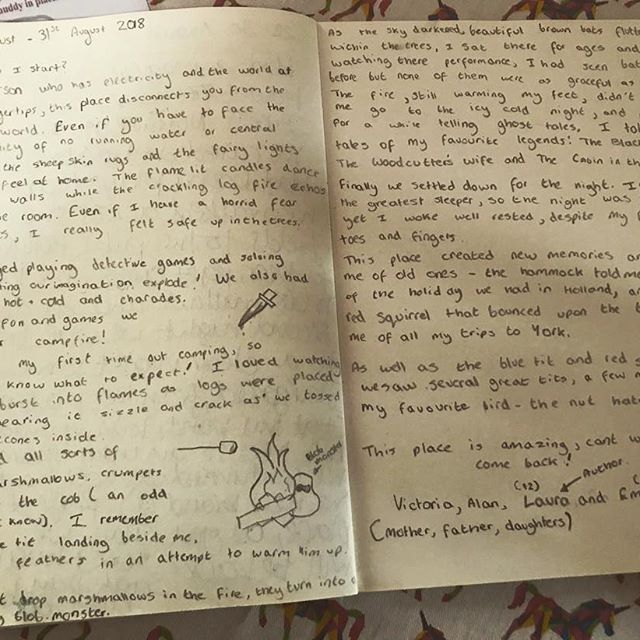 buddy in place
ust - 31st August 2018
o I start?
son who has electricity and the world at
gertips, this place disconnects you from the
world. Even if you have to face the
lity of no running water or central
the sheep skin rugs and the fairy lights
feel at home. The flame lit candles dance
walls while the crackling log fire echos
e room. Even if I have a horrid fear
s, I really felt safe up in the trees.
ed playing detective games and solving
ing our imagination explode! We also had
hot + cold and charades.
fun and games we
r campfire!
my first time out camping, so
know what to expect! I loved watching
burst into flames as logs were placed
hearing it sizzle and crack as we tossed
cones inside.
d all sorts of
arshmallows, crumpets
the cob (an odd
know). I remember
e tit landing beside me,
feathers in an attempt to warm him up.
t drop marshmallows in the fire, they turn into
g blob monster.
Blob monster
As the sky darkened, beautiful brown bats flutt
within the trees, I sat there for ages and
watching there performance, I had seen bat
before but none of them were as graceful as
The fire, still warming my feet, didn't
me go to the icy cold night, and
for a while telling ghost tales. I to
tales of my favourite legends: The Black
The Woodcutter's wife and The Cabin in th
Finally we settled down for the night. I
the greatest sleeper, so the night was
yet I woke well rested, despite my
toes and fingers.
This place created new memories an
me of old ones - the hammock told m
of the holiday we had in Holland, an
red squirrel that bounced upon the t
me of all my trips to York.
As well as the blue tit and red s
we saw several great tits, a few
my favourite bird - the nut hat
This place is amazing, cant w
come back!
Author
(12)
Victoria, Alan, Laura and Em
(mother, father, daughters)